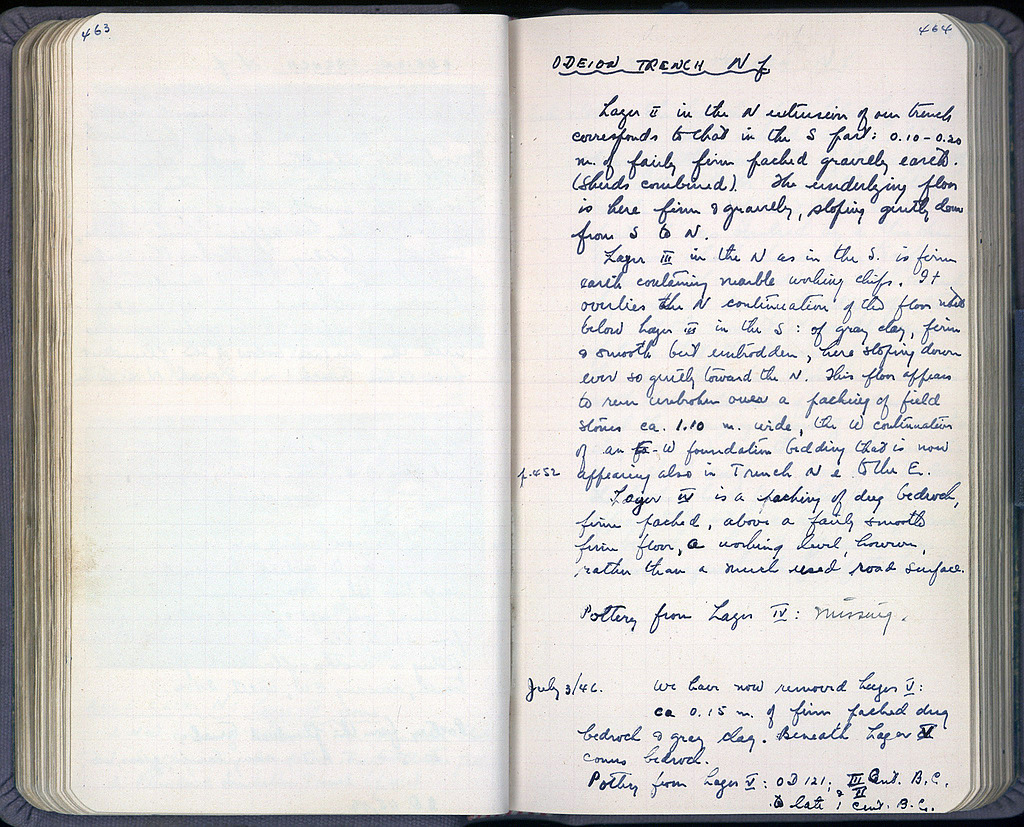 463
464
ODEION TRENCH N f
Layer II in the N extension of our trench
corresponds to that in the S part: 0.10-0.20
m. of fairly firm packed gravely earth.
(Sherds combined). The underlying floor
is here firm & gravely, sloping gently down
from S to N.
Layer III in the N as in the S. is firm
earth containing marble working chips. It
overlies the N continuation of the floor
below Layer III in the S: of gray clay, firm
& smooth but untrodden, here sloping down
ever so gently toward the N. This floor appears
to run unbroken over a packing of field
stones ca. 1.10 m. wide, the W continuation
of an E-W foundation bedding that is now
p.452 appearing also in Trench N e to the E.
Layer IV is a packing of dug bedrock,
firm packed, above a fairly smooth
firm floor, a working level, however,
rather than a much used road surface.
Pottery from Layer IV: missing.
July 3/46. We have now removed Layer V:
ca 0.15 m. of firm packed dug
bedrock & gray clay. Beneath Layer V
comes bedrock.
Pottery from Layer V: OD 121; III & II Cent. B.C.
to late 1 cent. B.C.